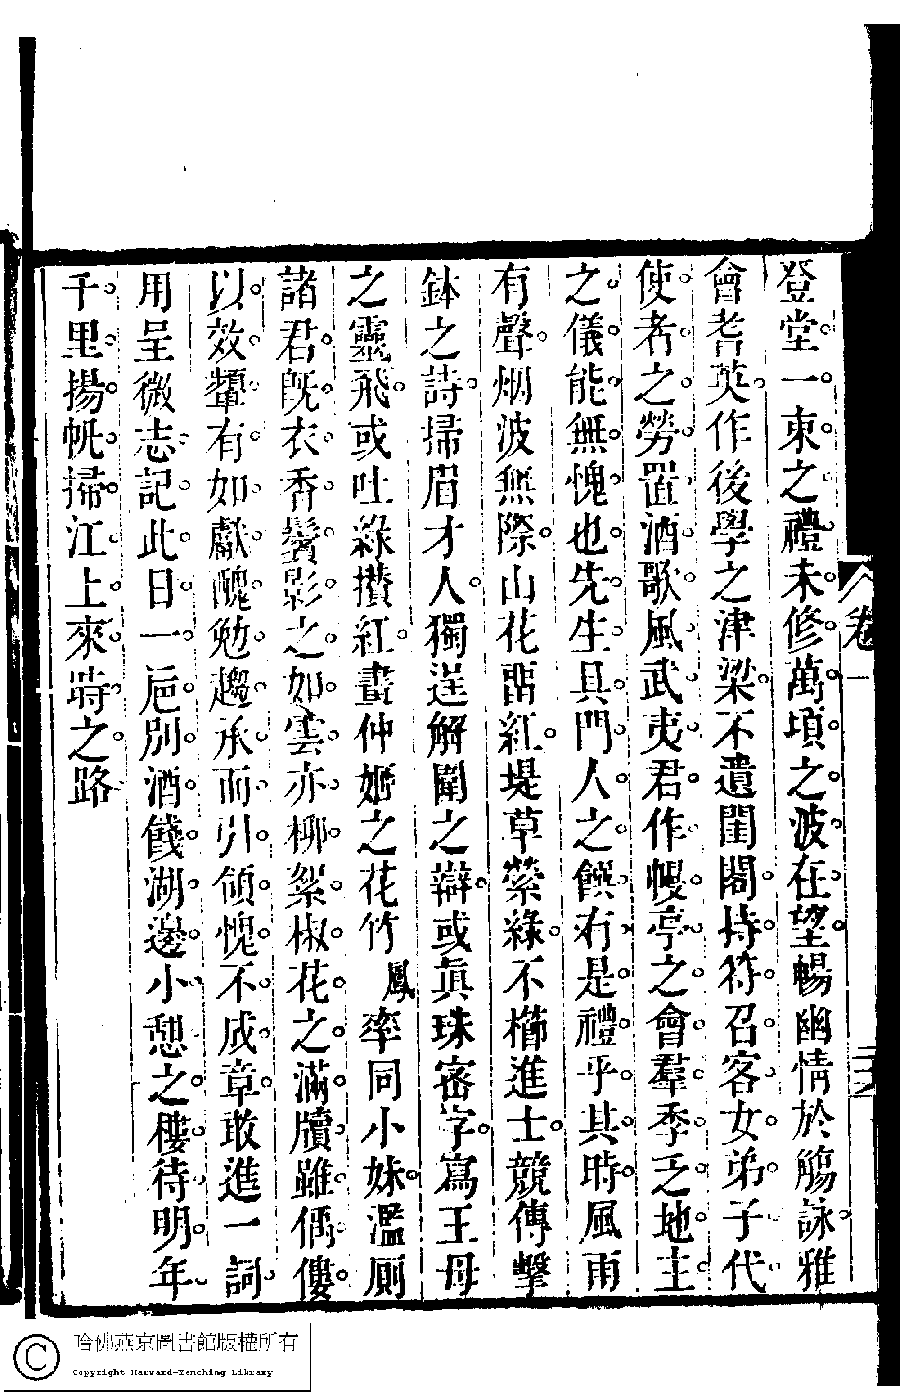 登堂。一束之禮未修。萬頃之波在望。暢幽情於觴詠。雅
會耆英。作後學之津梁。不遺閨閣。持符召客。女弟子代
使者之勞。置酒歌風。武夷君作幔亭之會。羣季乏地主
之儀。能無愧也。先生具門人之饌。有是禮乎。其時風雨
有聲。烟波無際。山花罶紅。堤草縈綠。不櫛進士。競傳擊
鉢之詩。掃眉才人。獨逞解圍之辯。或眞珠密字。寫王母
之靈飛。或吐綠攢紅。畫仲姬之花竹 鳳率同小妹。濫厠
諸君。旣衣香鬢影之如雲。亦柳絮椒花之滿牘。雖傴僂
以效顰。有如獻醜。勉趨承而引領。愧不成章。敢進一詞。
用呈微志。記此日一巵別酒。餞湖邊小憩之樓。待明年
千里揚帆。掃江上來時之路。
卷一
二六
哈佛燕京圖書館版權所有
Copyright Harvard-Yenching Library